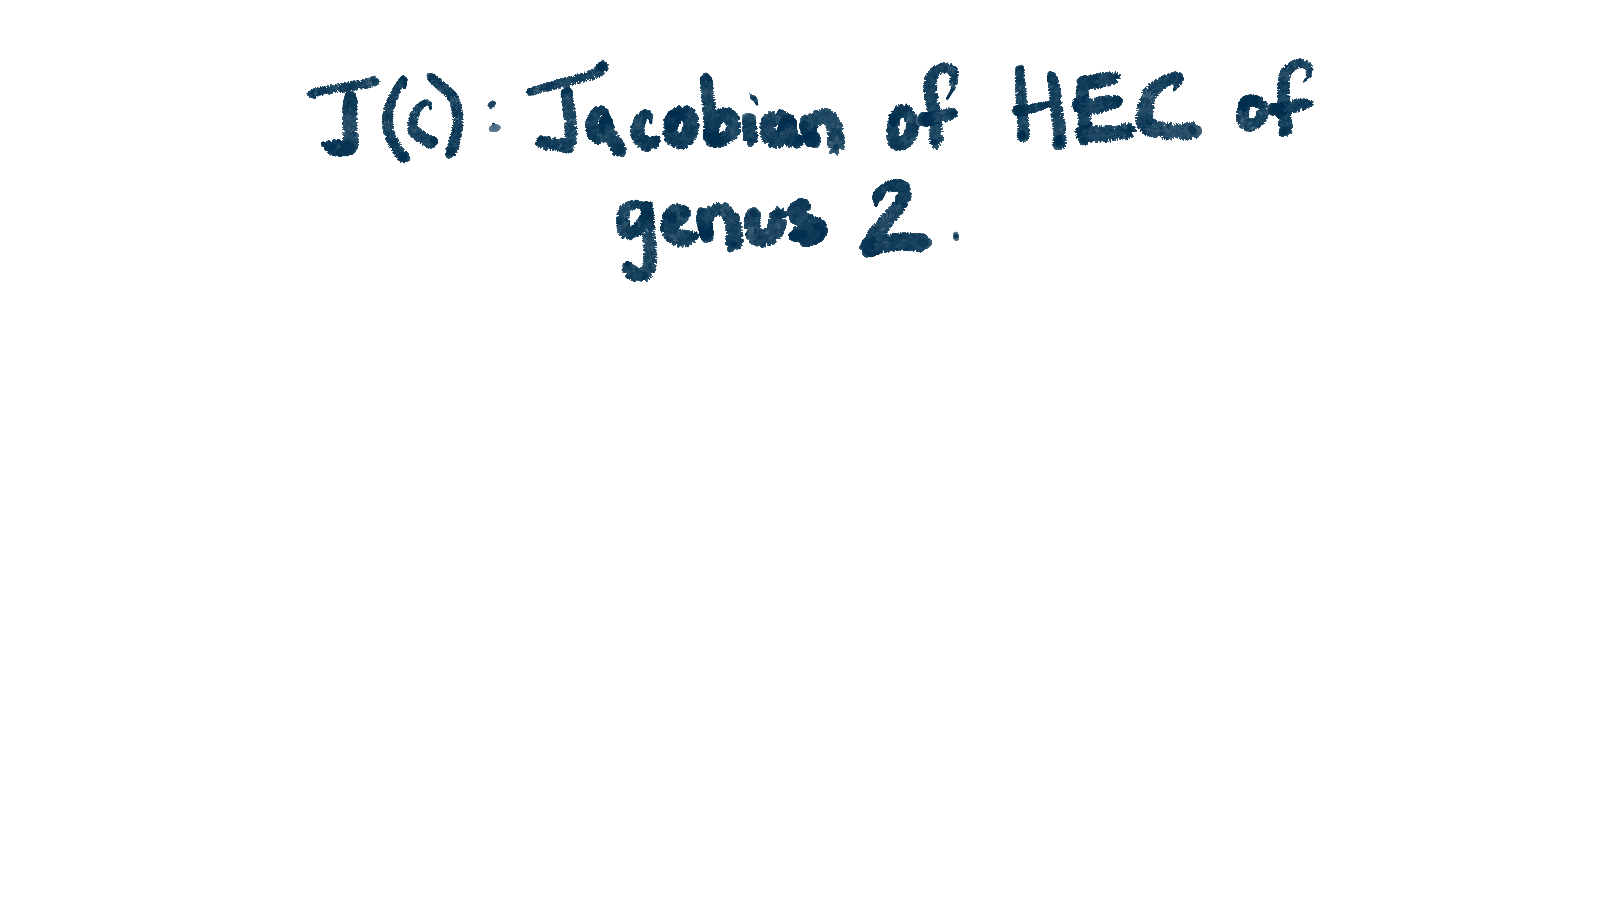 J(C): Jacobian of HEC of
genus 2.